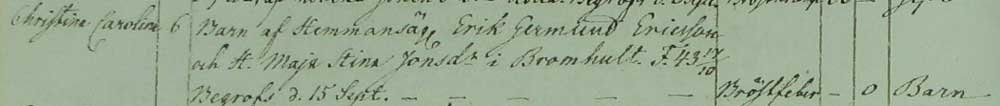 Christina Carolina 6 Barn af Hemmansäg. Erik Germund Ericsson
och H. Maja Stina Jonsdr i Bromhult. F. 43 17/10
Begrofs d. 15 Sept. — — — — — Bröstfeber — 0 Barn